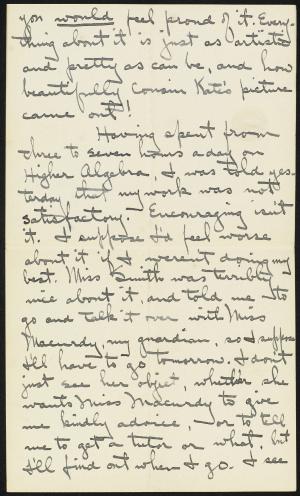 you would feel proud of it. Every-
thing about it is just as artistic
and pretty as can be, and how
beautifully Cousin Kate's picture
came out!
Having spent from
three to seven hours a day on
Higher Algebra, I was told yes-
terday that my work was not
satisfactory. Encouraging isn't
it. I suppose I'd feel worse
about it if I weren't doing my
best. Miss Smith was terribly
nice about it, and told me to
go and talk it over with Miss
Macurdy, my guardian, so I suppose
I'll have to go tomorrow. I don't
just see her object, whether she
wants Miss Macurdy to give
me kindly advice, or to tell
me to get a tutor or what, but
I'll find out when I go. I see